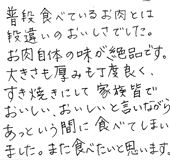 普段食べているお肉とは
段違いのおいしさでした。
お肉自体の味が絶品です。
大きさも厚みも丁度良く、
すき焼きにして家族皆で
おいしい、おいしいと言いながら
あっという間に食べてしまい
ました。また食べたいと思います。